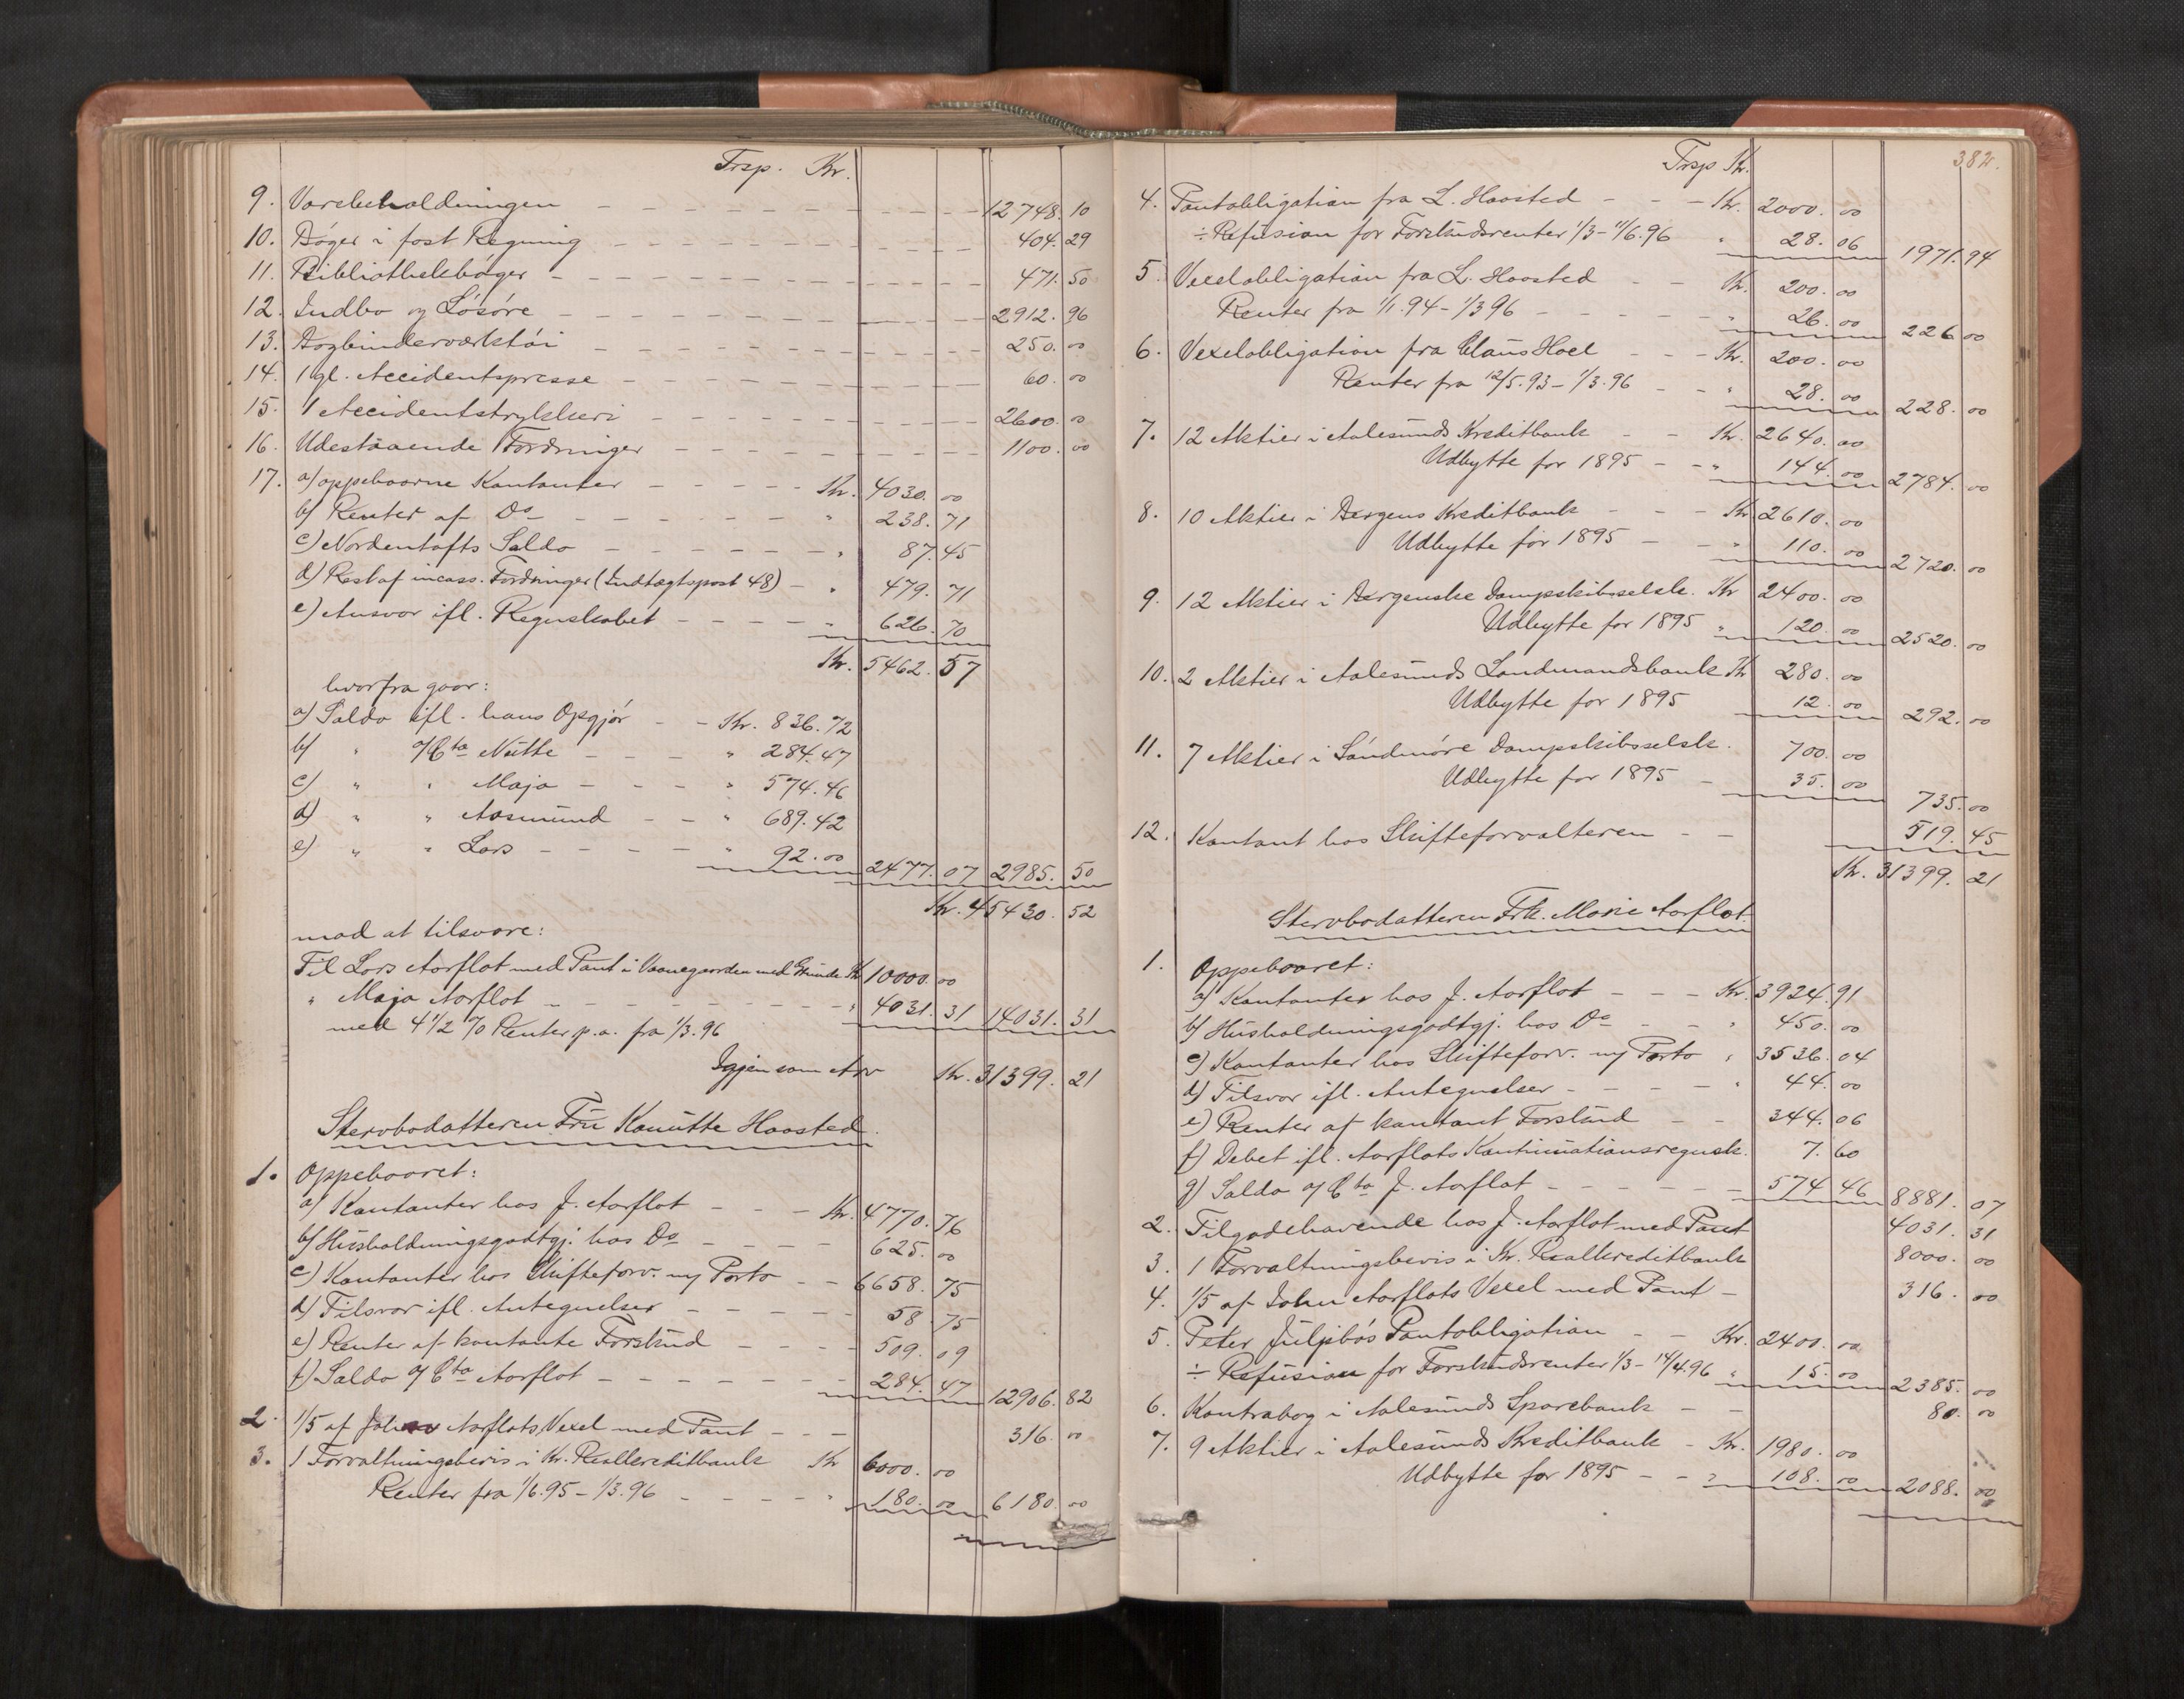 Trsp. Kr.
9. Varebeholdningen 12748. 10
10. Bøger i fast Regning 404. 29
11. Bibliothekbøger 471. 50
12. Indbo og Løsøre 2912. 96
13. Bogbinderværktøi 250. 00
14. 1 gl. Accidentspresse 60. 00
15. 1 Accidentstrykkeri 2600. 00
16. Udestaaende Fordringer 1100. 00
17. a) oppebaarne Kontanter Kr. 4030. 00
b) Renter af Do " 238. 71
c) Nordentofts Saldo " 87. 45
d) Rest af incass. Fordringer (Indtægtspost 48) " 479. 71
e) Ansvar ifl. Regnskabet " 626. 70
Kr. 5462. 57
hvorfra gaar:
a) Saldo ifl. hans Opgjør Kr. 836. 72
b) " a/ Cta Nütte " 284. 47
c) " " Maja " 574. 46
d) " " Aasmund " 689. 42
e) " " Lars " 92. 00 2477. 07 2985. 50
Kr. 45430. 52
mod at tilsvare:
Til Lars Aarflot med Pant i Vaanegaarden med Grunde Kr 10000. 00
" Maja Aarflot " 4031. 31 14031. 31
med 4 1/2 % Renter p. a. fra 1/3. 96
Igjen som Arv Kr. 31399. 21
Stervbodatteren Frü Kanütte Haasted.
1. Oppebaaret:
a) Kontanter hos J. Aarflot Kr. 4770. 76
b) Husholdningsgodtgj. hos Do 625. 00
c) Kontanter hos Skifteforv. m/ Porto 6658. 75
d) Tilsvar ifl. Antegnelser 58. 75
e) Renter af kontante Forskud 509. 09
f) Saldo a/ Cta Aarflot 284. 47 12906. 82
2. 1/5 af Johan Aarflots Vexel med Pant 316. 00
3. 1 Forvaltningsbevis i Kr. Realkreditbank Kr 6000. 00
Renter fra 1/6. 95 - 1/3. 96 " 180. 00 6180. 00
382.
Trsp Kr.
4. Pantobligation fra L. Haasted Kr. 2000. 00
÷ Refusion for Forskudsrenter 1/3 - 11/6. 96 " 28. 06 1971. 94
5. Vexelobligation fra L. Haasted Kr. 200. 00
Renter fra 1/1. 94 - 1/3 96 " 26. 00 226. 00
6. Vexelobligation fra Claus Hoel Kr. 200. 00
Renter fra 12/5. 93 - 1/3. 96 " 28. 00 228. 00
7. 12 Aktier i Aalesunds Kreditbank Kr. 2640. 00
Udbytte for 1895 " 144. 00 2784. 00
8. 10 Aktier i Bergens Kreditbank Kr 2610. 00
Udbytte for 1895 " 110. 00 2720. 00
9. 12 Aktier i Bergenske Dampskibsselsk. Kr 2400. 00
Udbytte for 1895 " 120. 00 2520. 00
10. 2 Aktier i Aalesunds Landmandsbank Kr 280. 00
Udbytte for 1895 12. 00 292. 00
11. 7 Aktier i Søndmøre Dampskibsselsk. 700. 00
Udbytte for 1895 35. 00 735. 00
12. Kontant hos Skifteforvalteren 519. 45
Kr. 31399. 21
Stervbodatteren Frk. Marie Aarflot
1. Oppebaaret:
a) Kontanter hos J. Aarflot Kr. 3924. 91
b) Husholdningsgodtgj. hos Do " 450. 00
c) Kontanter hos Skifteforv. m/ Porto " 3536. 04
d) Tilsvar ifl. Antegnelser " 44. 00
e) Renter af kontant Forskud 344. 06
f) Debet ifl. Aarflots Kontinuationsregnsk. 7. 60
g) Saldo a/ Cta J. Aarflot 574. 46 8881. 07
2. Tilgodehavende hos J. Aarflot med Pant 4031. 31
3. 1 Forvaltningsbevis i Kr. Realkreditbank 8000. 00
4. 1/5 af Johan Aarflots Vexel med Pant 316. 00
5. Peter Juljebøs Pantobligation Kr. 2400. 00
÷ Refusion for Forskudsrenter 1/3 - 14/4 96 " 15. 00 2385. 00
6. Kontrabog i Aalesunds Sparebank 80. 00
7. 9 Aktier i Aalesunds Kreditbank Kr. 1980. 00
Udbytte for 1895 " 108. 00 2088. 00